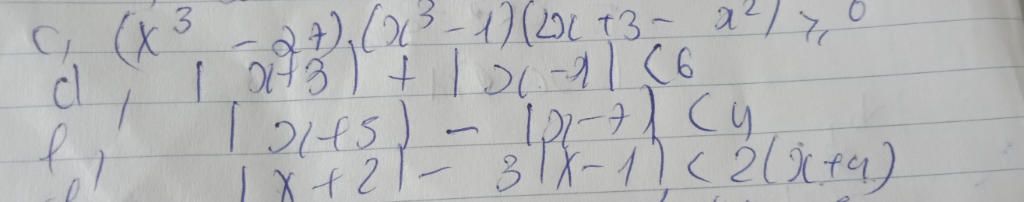 c, (x³ - 27).(x³-1)(2x+3-x²) ≥ 0
d, |x+3| + |x-1| < 6
f, |x+5| - |x-7| < 4
|x+2| - 3|x-1| < 2(x+4)